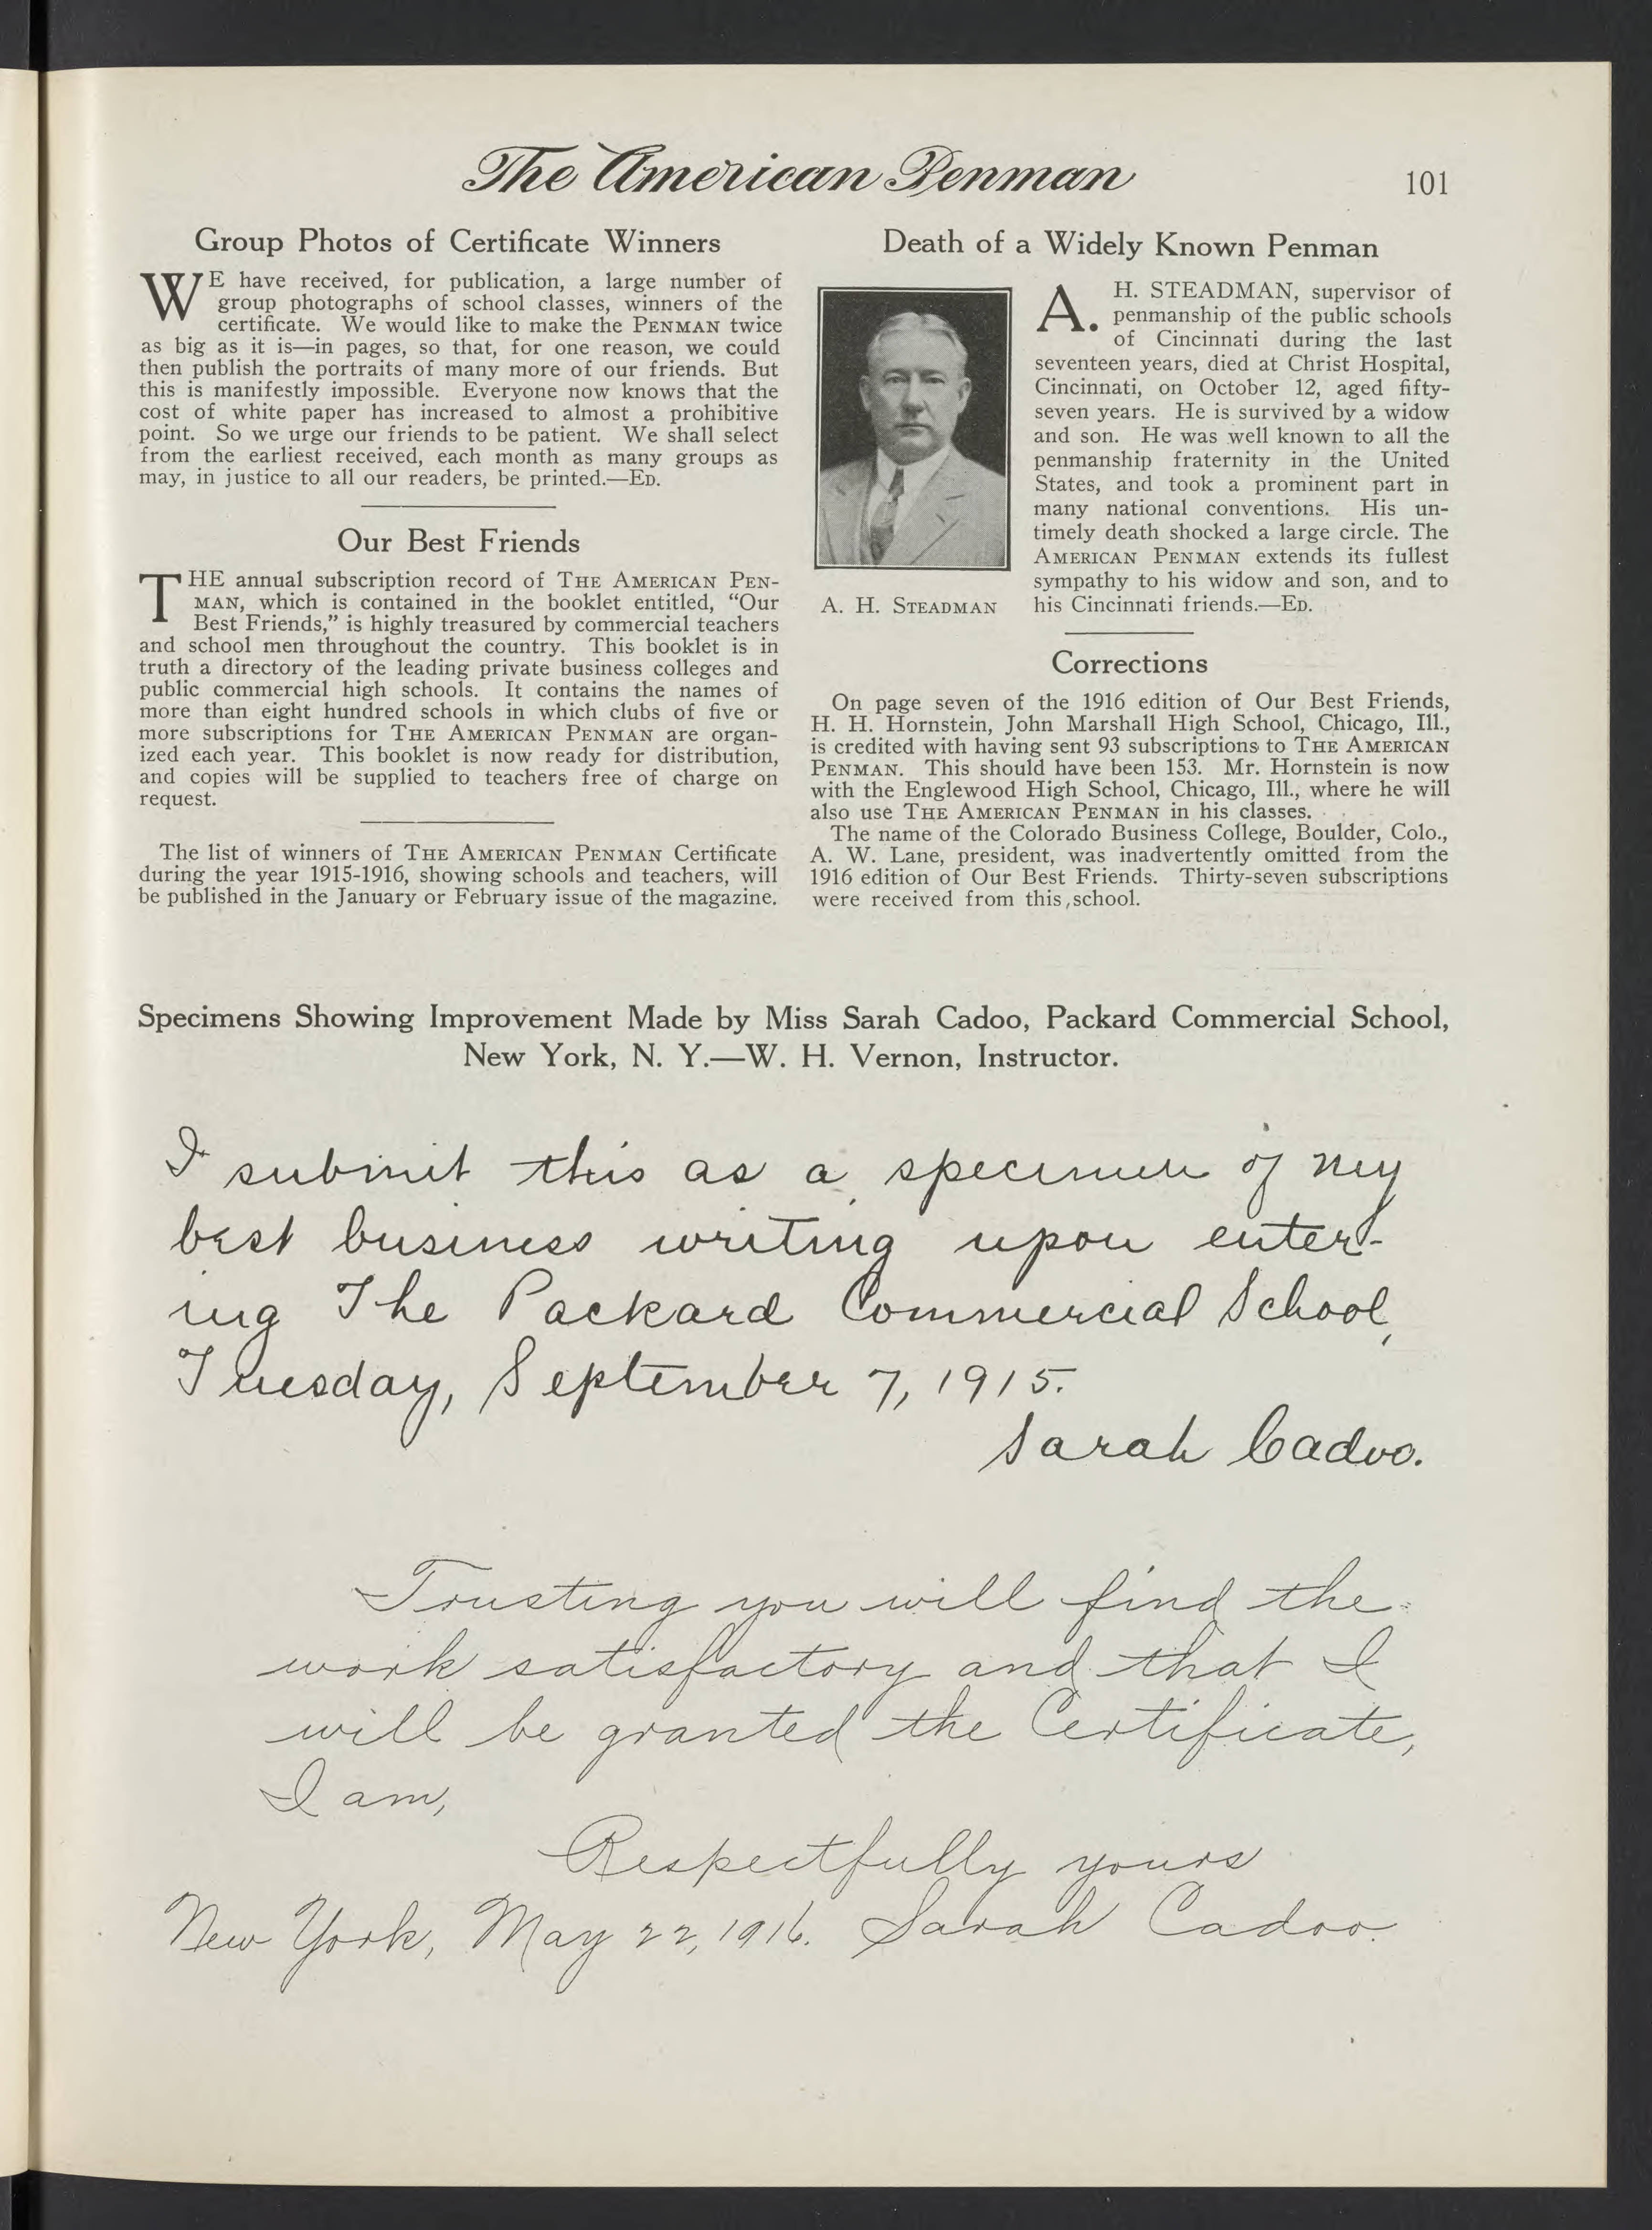 The American Penman
101
Group Photos of Certificate Winners
WE have received, for publication, a large number of
group photographs of school classes, winners of the
certificate. We would like to make the PENMAN twice
as big as it is—in pages, so that, for one reason, we could
then publish the portraits of many more of our friends. But
this is manifestly impossible. Everyone now knows that the
cost of white paper has increased to almost a prohibitive
point. So we urge our friends to be patient. We shall select
from the earliest received, each month as many groups as
may, in justice to all our readers, be printed.—ED.
Our Best Friends
THE annual subscription record of THE AMERICAN PEN-
MAN, which is contained in the booklet entitled, “Our
Best Friends,” is highly treasured by commercial teachers
and school men throughout the country. This booklet is in
truth a directory of the leading private business colleges and
public commercial high schools. It contains the names of
more than eight hundred schools in which clubs of five or
more subscriptions for THE AMERICAN PENMAN are organ-
ized each year. This booklet is now ready for distribution,
and copies will be supplied to teachers free of charge on
request.
The list of winners of THE AMERICAN PENMAN Certificate
during the year 1915-1916, showing schools and teachers, will
be published in the January or February issue of the magazine.
Death of a Widely Known Penman
A. H. STEADMAN, supervisor of
penmanship of the public schools
of Cincinnati during the last
seventeen years, died at Christ Hospital,
Cincinnati, on October 12, aged fifty-
seven years. He is survived by a widow
and son. He was well known to all the
penmanship fraternity in the United
States, and took a prominent part in
many national conventions. His un-
timely death shocked a large circle. The
AMERICAN PENMAN extends its fullest
sympathy to his widow and son, and to
his Cincinnati friends.—ED.
A. H. STEADMAN
Corrections
On page seven of the 1916 edition of Our Best Friends,
H. H. Hornstein, John Marshall High School, Chicago, Ill.,
is credited with having sent 93 subscriptions to THE AMERICAN
PENMAN. This should have been 153. Mr. Hornstein is now
with the Englewood High School, Chicago, Ill., where he will
also use THE AMERICAN PENMAN in his classes.
The name of the Colorado Business College, Boulder, Colo.,
A. W. Lane, president, was inadvertently omitted from the
1916 edition of Our Best Friends. Thirty-seven subscriptions
were received from this school.
Specimens Showing Improvement Made by Miss Sarah Cadoo, Packard Commercial School,
New York, N. Y.—W. H. Vernon, Instructor.
I submit this as a specimen of my
best business writing upon enter-
ing The Packard Commercial School,
Tuesday, September 7, 1915.
Sarah Cadoo.
Trusting you will find the
work satisfactory and that I
will be granted the Certificate,
I am,
Respectfully yours
New York, May 22, 1916. Sarah Cadoo.